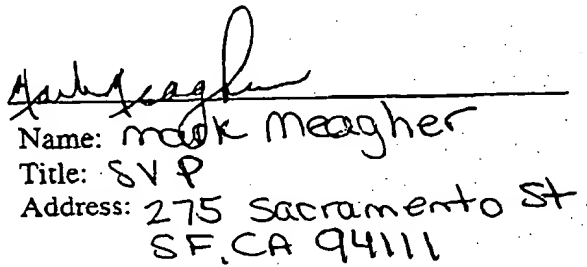 Name: Mark Meagher
Title: SVP
Address: 275 Sacramento St.
SF, CA 94111